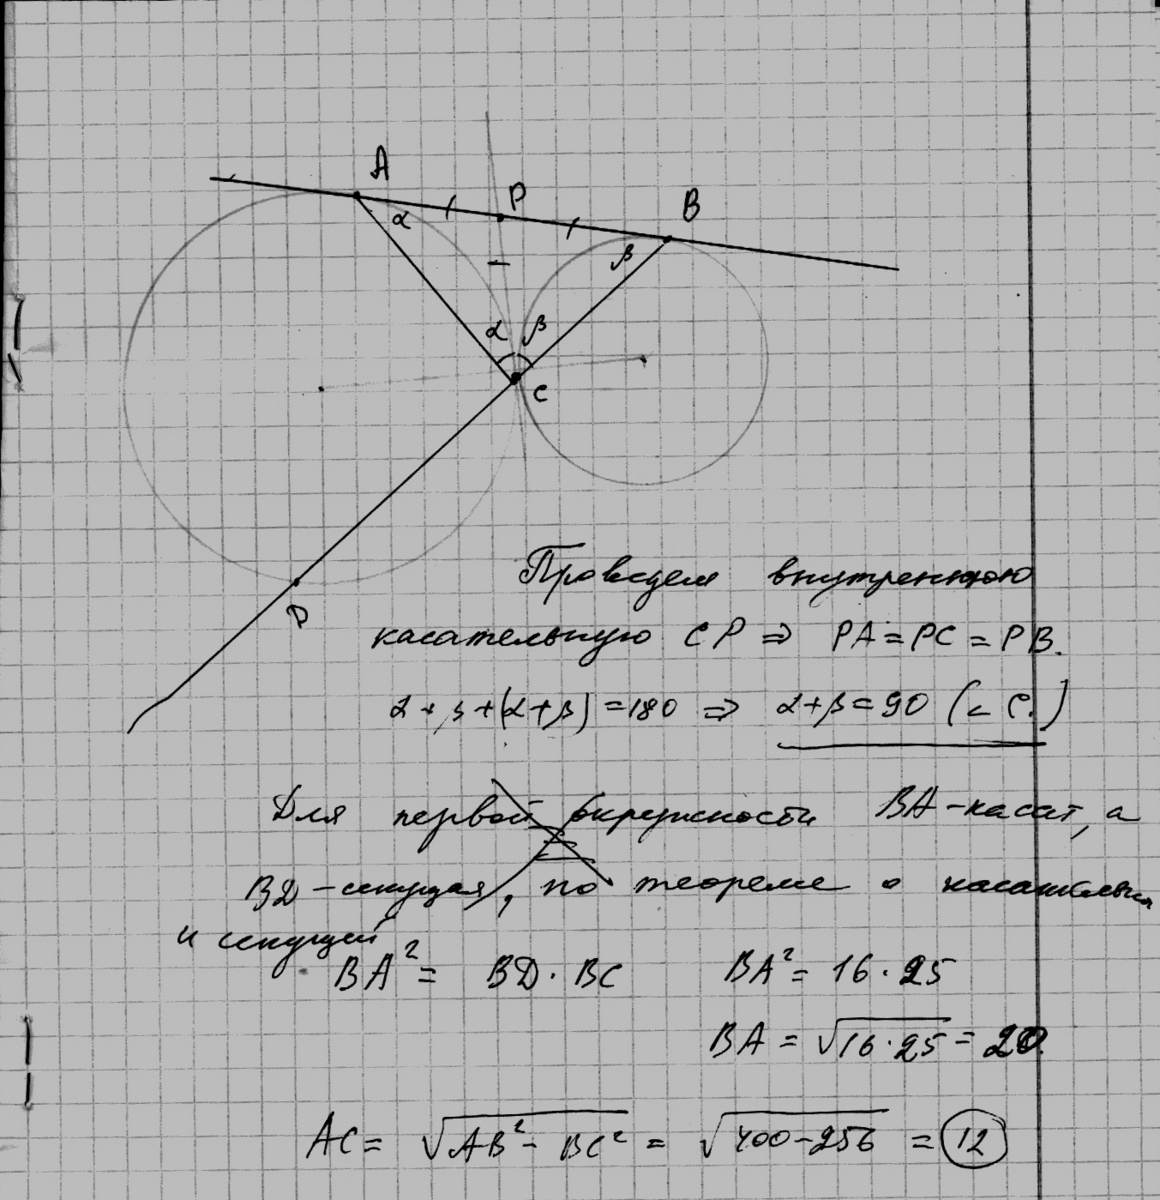 A
P
B
α
β
α β
C
D
Проведем внутреннюю
касательную CP ⇒ PA = PC = PB.
α + β + (α + β) = 180 ⇒ α + β = 90 (∠ C.)
Для первой окружности BA - касат, а
BD - секущая, по теореме о касательн
и секущей
BA² = BD · BC BA² = 16 · 25
BA = √16 · 25 = 20.
AC = √AB² - BC² = √400 - 256 = 12